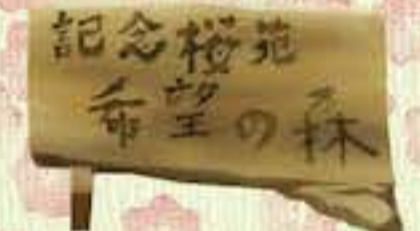 記念桜苑
希望の森